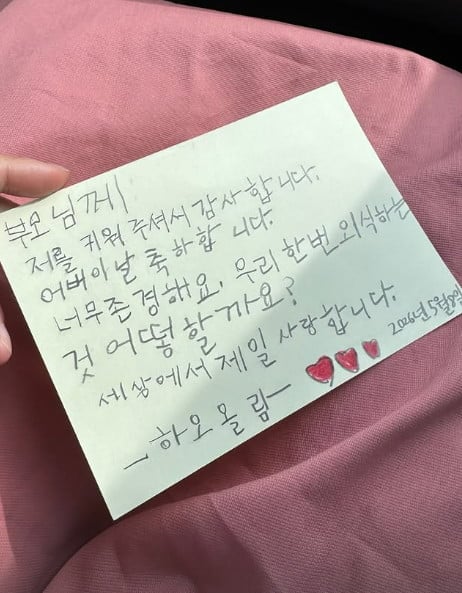 부모님께
저를 키워 주셔서 감사합니다.
어버이날 축하합니다.
너무존경해요. 우리 한번 외식하는
것 어떻할까요?
세상에서 제일 사랑합니다.
2026년 5월 8일
-하오 올림-